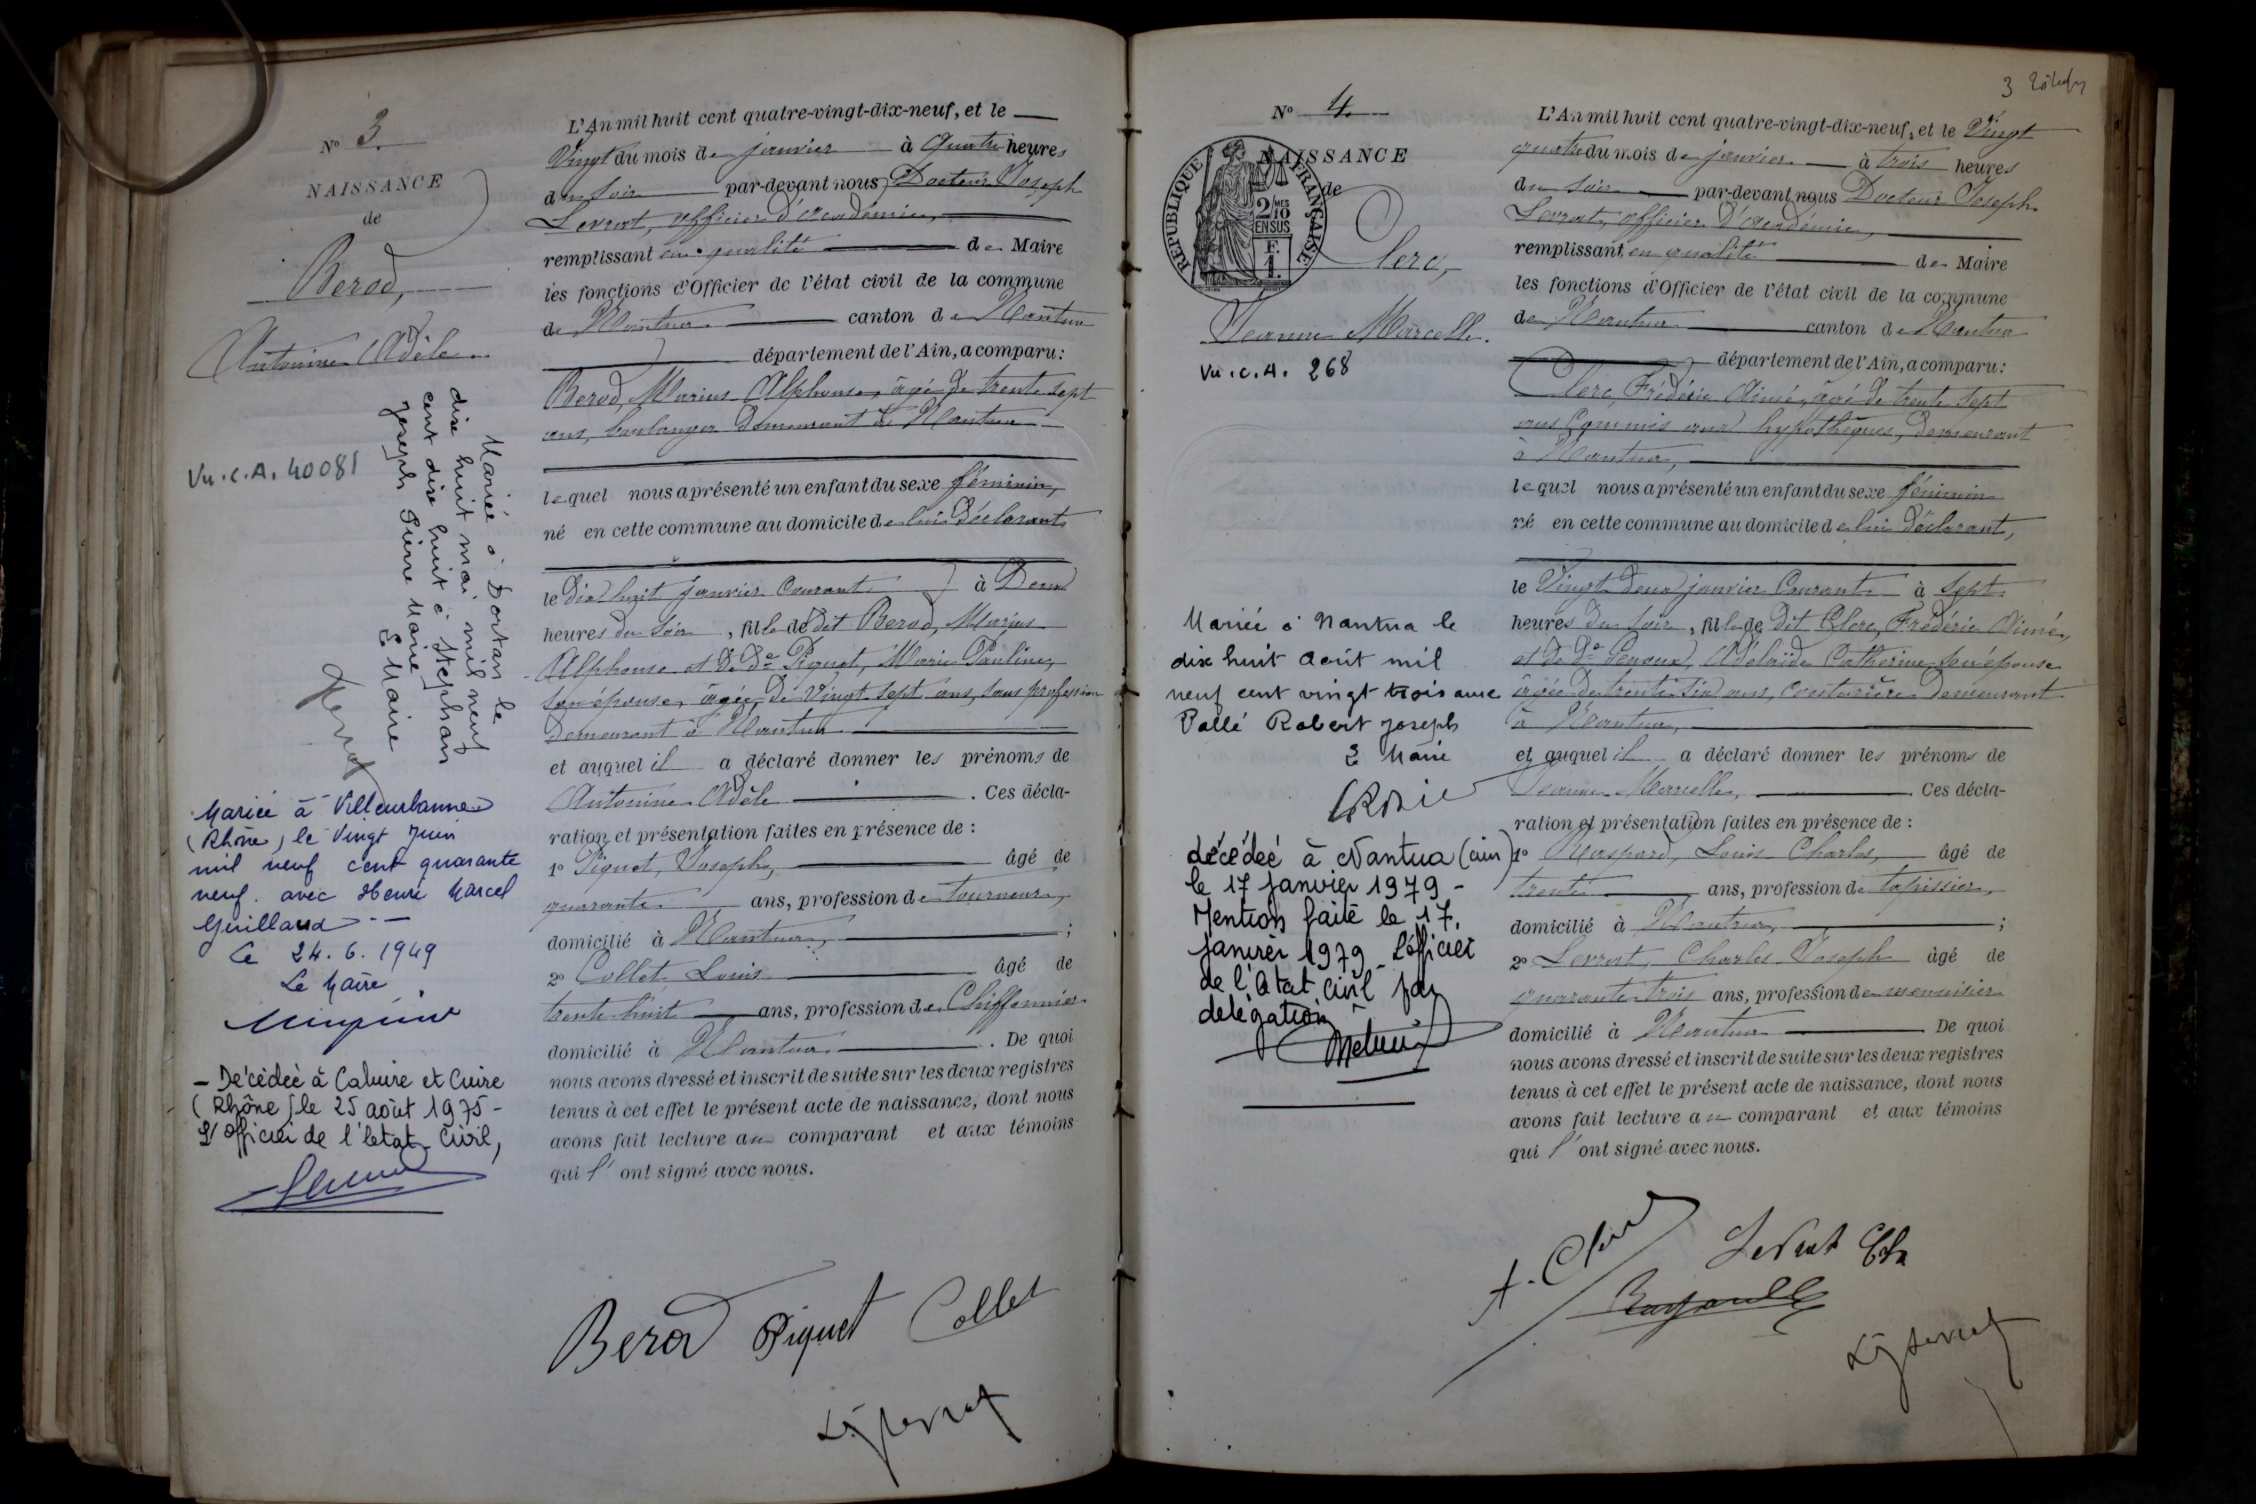 N° 3.
NAISSANCE
de
Berod,
Antoinine Adèle
Mariée à Dortan le
dix huit mai mil neuf
cent dix huit à Stephan
Joseph Pierre Marie
Le Maire
Vu.C.A. 40081
Mariée à Villeurbanne
(Rhône) le Vingt Juin
mil neuf cent quarante
neuf. avec Henri Marcel
Guilland
Le 24.6.1949
Le Maire
- Décédée à Caluire et Cuire
(Rhône) le 25 août 1975 -
L'Officier de l'Etat Civil,
L'An mil huit cent quatre-vingt-dix-neuf, et le
Vingt du mois de janvier à Quatre heures
du soir par-devant nous Docteur Joseph
Levrat, officier d'académie,
remplissant en qualité de Maire
les fonctions d'Officier de l'état civil de la commune
de Nantua canton de Nantua
département de l'Ain, a comparu:
Berod, Marius Alphonse, âgé de trente sept
ans, boulanger demeurant à Nantua
lequel nous a présenté un enfant du sexe féminin,
né en cette commune au domicile de lui déclarant
le dix huit janvier courant à Deux
heures du soir, fille de dit Berod, Marius
Alphonse et de De Piquet, Marie Pauline,
son épouse, âgée de vingt sept ans, sans profession
demeurant à Nantua
et auquel il a déclaré donner les prénoms de
Antoinine Adèle. Ces décla-
ration et présentation faites en présence de :
1° Piquet, Joseph, âgé de
quarante ans, profession de tourneur,
domicilié à Nantua, ;
2° Collet Louis âgé de
trente huit ans, profession de Chiffonnier
domicilié à Nantua. De quoi
nous avons dressé et inscrit de suite sur les deux registres
tenus à cet effet le présent acte de naissance, dont nous
avons fait lecture au comparant et aux témoins
qui l'ont signé avec nous.
Berod Piquet Collet
3
N° 4.
NAISSANCE
de
RÉPUBLIQUE FRANÇAISE
2 MES
10
EN SUS
F.
1.
Clerc,
Jeanne Marcelle.
Vu.C.A. 268
Mariée à Nantua le
dix huit Août mil
neuf cent vingt trois avec
Pallé Robert Joseph
Le Maire
décédée à Nantua (ain)
le 17 janvier 1979 -
Mention faite le 17.
janvier 1979 - L'officier
de l'état civil par
délégation
L'An mil huit cent quatre-vingt-dix-neuf, et le Vingt
quatre du mois de janvier à trois heures
du soir par-devant nous Docteur Joseph
Levrat, officier d'académie,
remplissant en qualité de Maire
les fonctions d'Officier de l'état civil de la commune
de Nantua canton de Nantua
département de l'Ain, a comparu:
Clerc, Frédéric Aimé, âgé de trente sept
ans Commis aux hypothèques, demeurant
à Nantua,
lequel nous a présenté un enfant du sexe féminin
né en cette commune au domicile de lui déclarant,
le Vingt deux janvier Courant à Sept
heures du soir, fille de dit Clerc, Frédéric Aimé,
et de De Adélaïde Catherine, son épouse
âgée de trente six ans, couturière demeurant
à Nantua,
et auquel il a déclaré donner les prénoms de
Jeanne Marcelle, Ces décla-
ration et présentation faites en présence de :
1° Louis Charles, âgé de
trente ans, profession de tapissier,
domicilié à Nantua, ;
2° Levrat, Charles Joseph âgé de
quarante trois ans, profession de menuisier
domicilié à Nantua De quoi
nous avons dressé et inscrit de suite sur les deux registres
tenus à cet effet le présent acte de naissance, dont nous
avons fait lecture au comparant et aux témoins
qui l'ont signé avec nous.
Levrat Ch